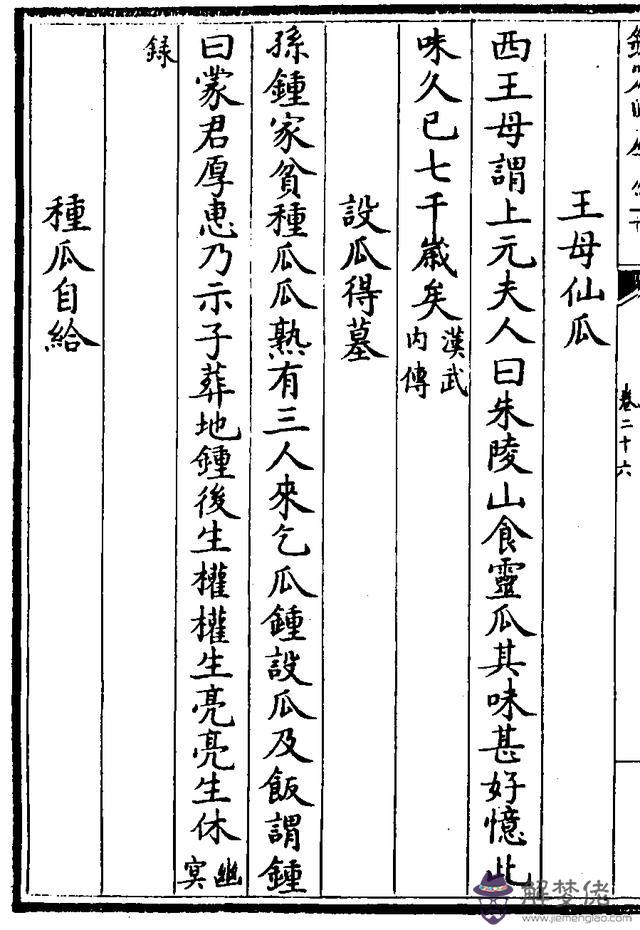 卷二十六
王母仙瓜
西王母謂上元夫人曰朱陵山食靈瓜其味甚好憶此
味久已七千歲矣漢武內傳
設瓜得墓
孫鍾家貧種瓜瓜熟有三人來乞瓜鍾設瓜及飯謂鍾
曰蒙君厚惠乃示子葬地鍾後生權權生亮亮生休幽冥
録
種瓜自給
解梦佬
www.jiemenglao.com